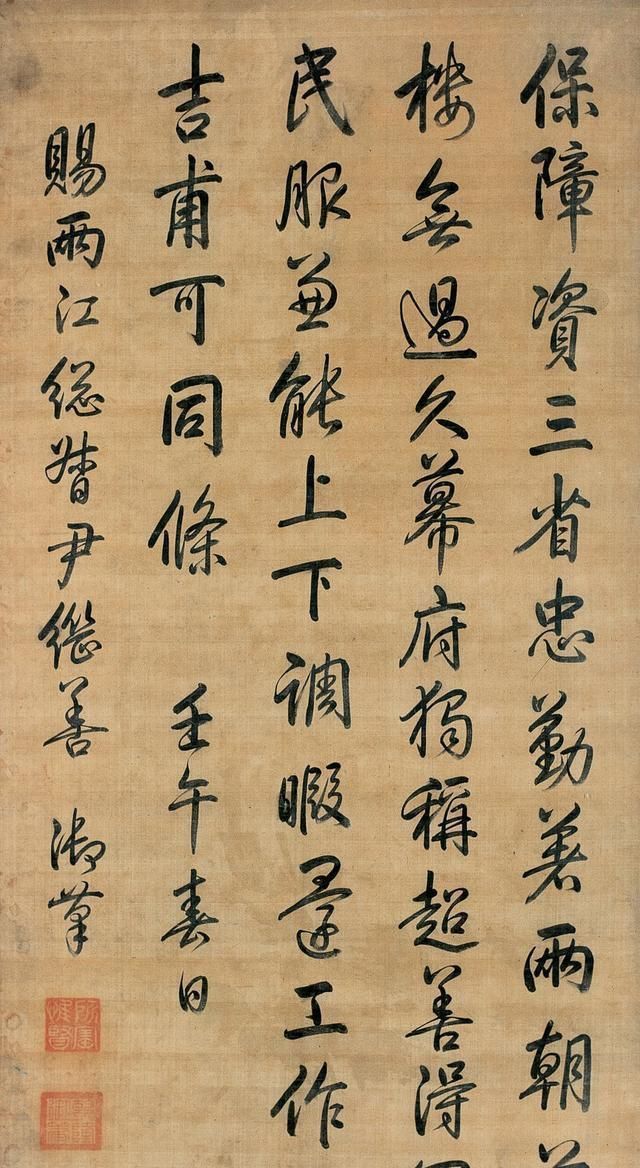 保障資三省忠勤著兩朝
樓無過久幕府獨稱超善得
民服兼能上下調暇還工作
吉甫可同條 壬午春日
賜兩江總督尹繼善 御筆
所寶惟賢